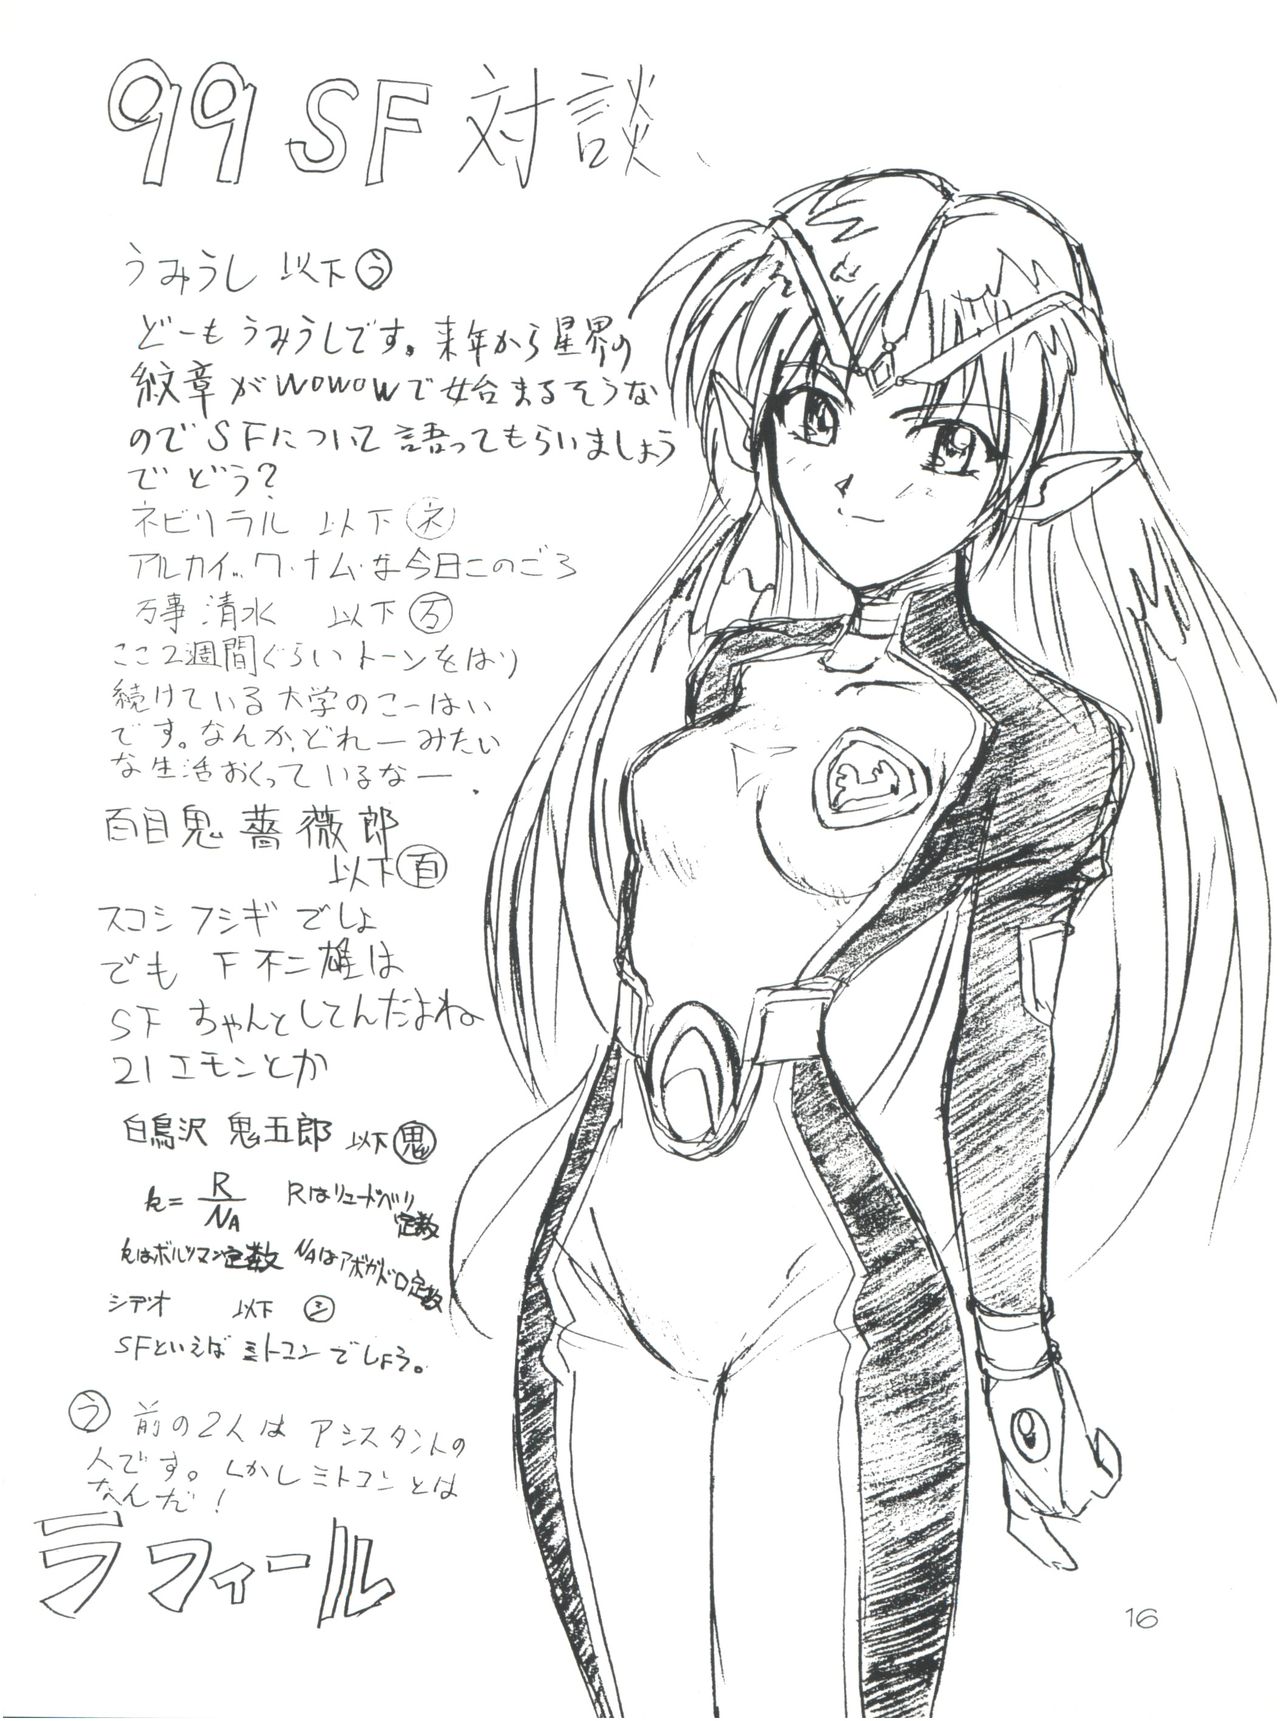 99 SF 対談、
うみうし 以下う
どーもうみうしです。来年から星界の
紋章がWOWOWで始まるそうな
のでSFについて語ってもらいましょう
でどう?
ネビリラル 以下ネ
アルカイック・ナム・な今日このごろ
万事 清水 以下万
ここ2週間ぐらいトーンをはり
続けている大学のこーはい
です。なんか、どれーみたい
な生活おくっているなー.
百目鬼 薔薇郎
以下百
スコシフシギでしょ
でも 下不二雄は
SFちゃんとしてんだよね
21エモンとか
白鳥沢 鬼五郎 以下鬼
k=R/NA Rはリュードベリ
定数
kはボルツマン定数 NAはアボガドロ定数
シデオ 以下シ
SFといえばミトコンでしょう。
う 前の2人はアシスタントの
人です。しかしミトコンとは
なんだ!
ラフィール
16